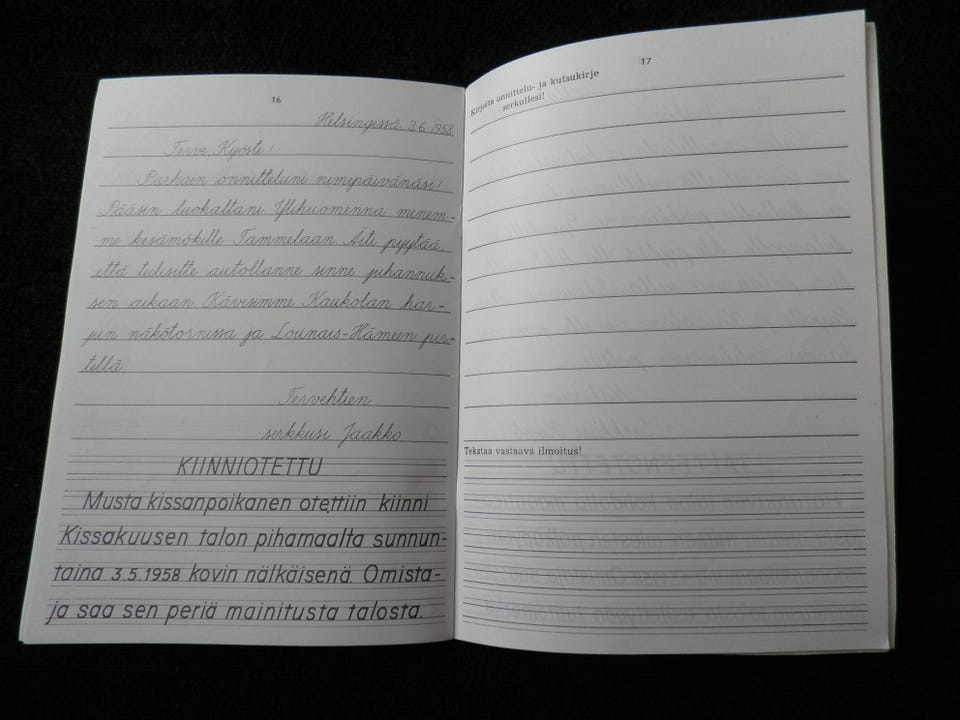 16
Helsingissä 3.6.1958.
Terve, Kyösti!
Parhain onnitteluni nimipäivänäsi!
Pääsin luokaltani. Ylihuomenna menem-
me kesämökille Tammelaan. Äiti pyytää,
että tulisitte autollanne sinne juhannuk-
sen aikaan. Kävisimme Kaukolan har-
jun näkötornissa ja Lounais-Hämeen pir-
tillä.
Tervehtien
serkkusi Jaakko
KIINNIOTETTU
Musta kissanpoikanen otettiin kiinni
Kissakuusen talon pihamaalta sunnun-
taina 3.5.1958 kovin nälkäisenä. Omista-
ja saa sen periä mainitusta talosta.
17
Kirjoita onnittelu- ja kutsukirje
serkullesi!
Tekstaa vastaava ilmoitus!